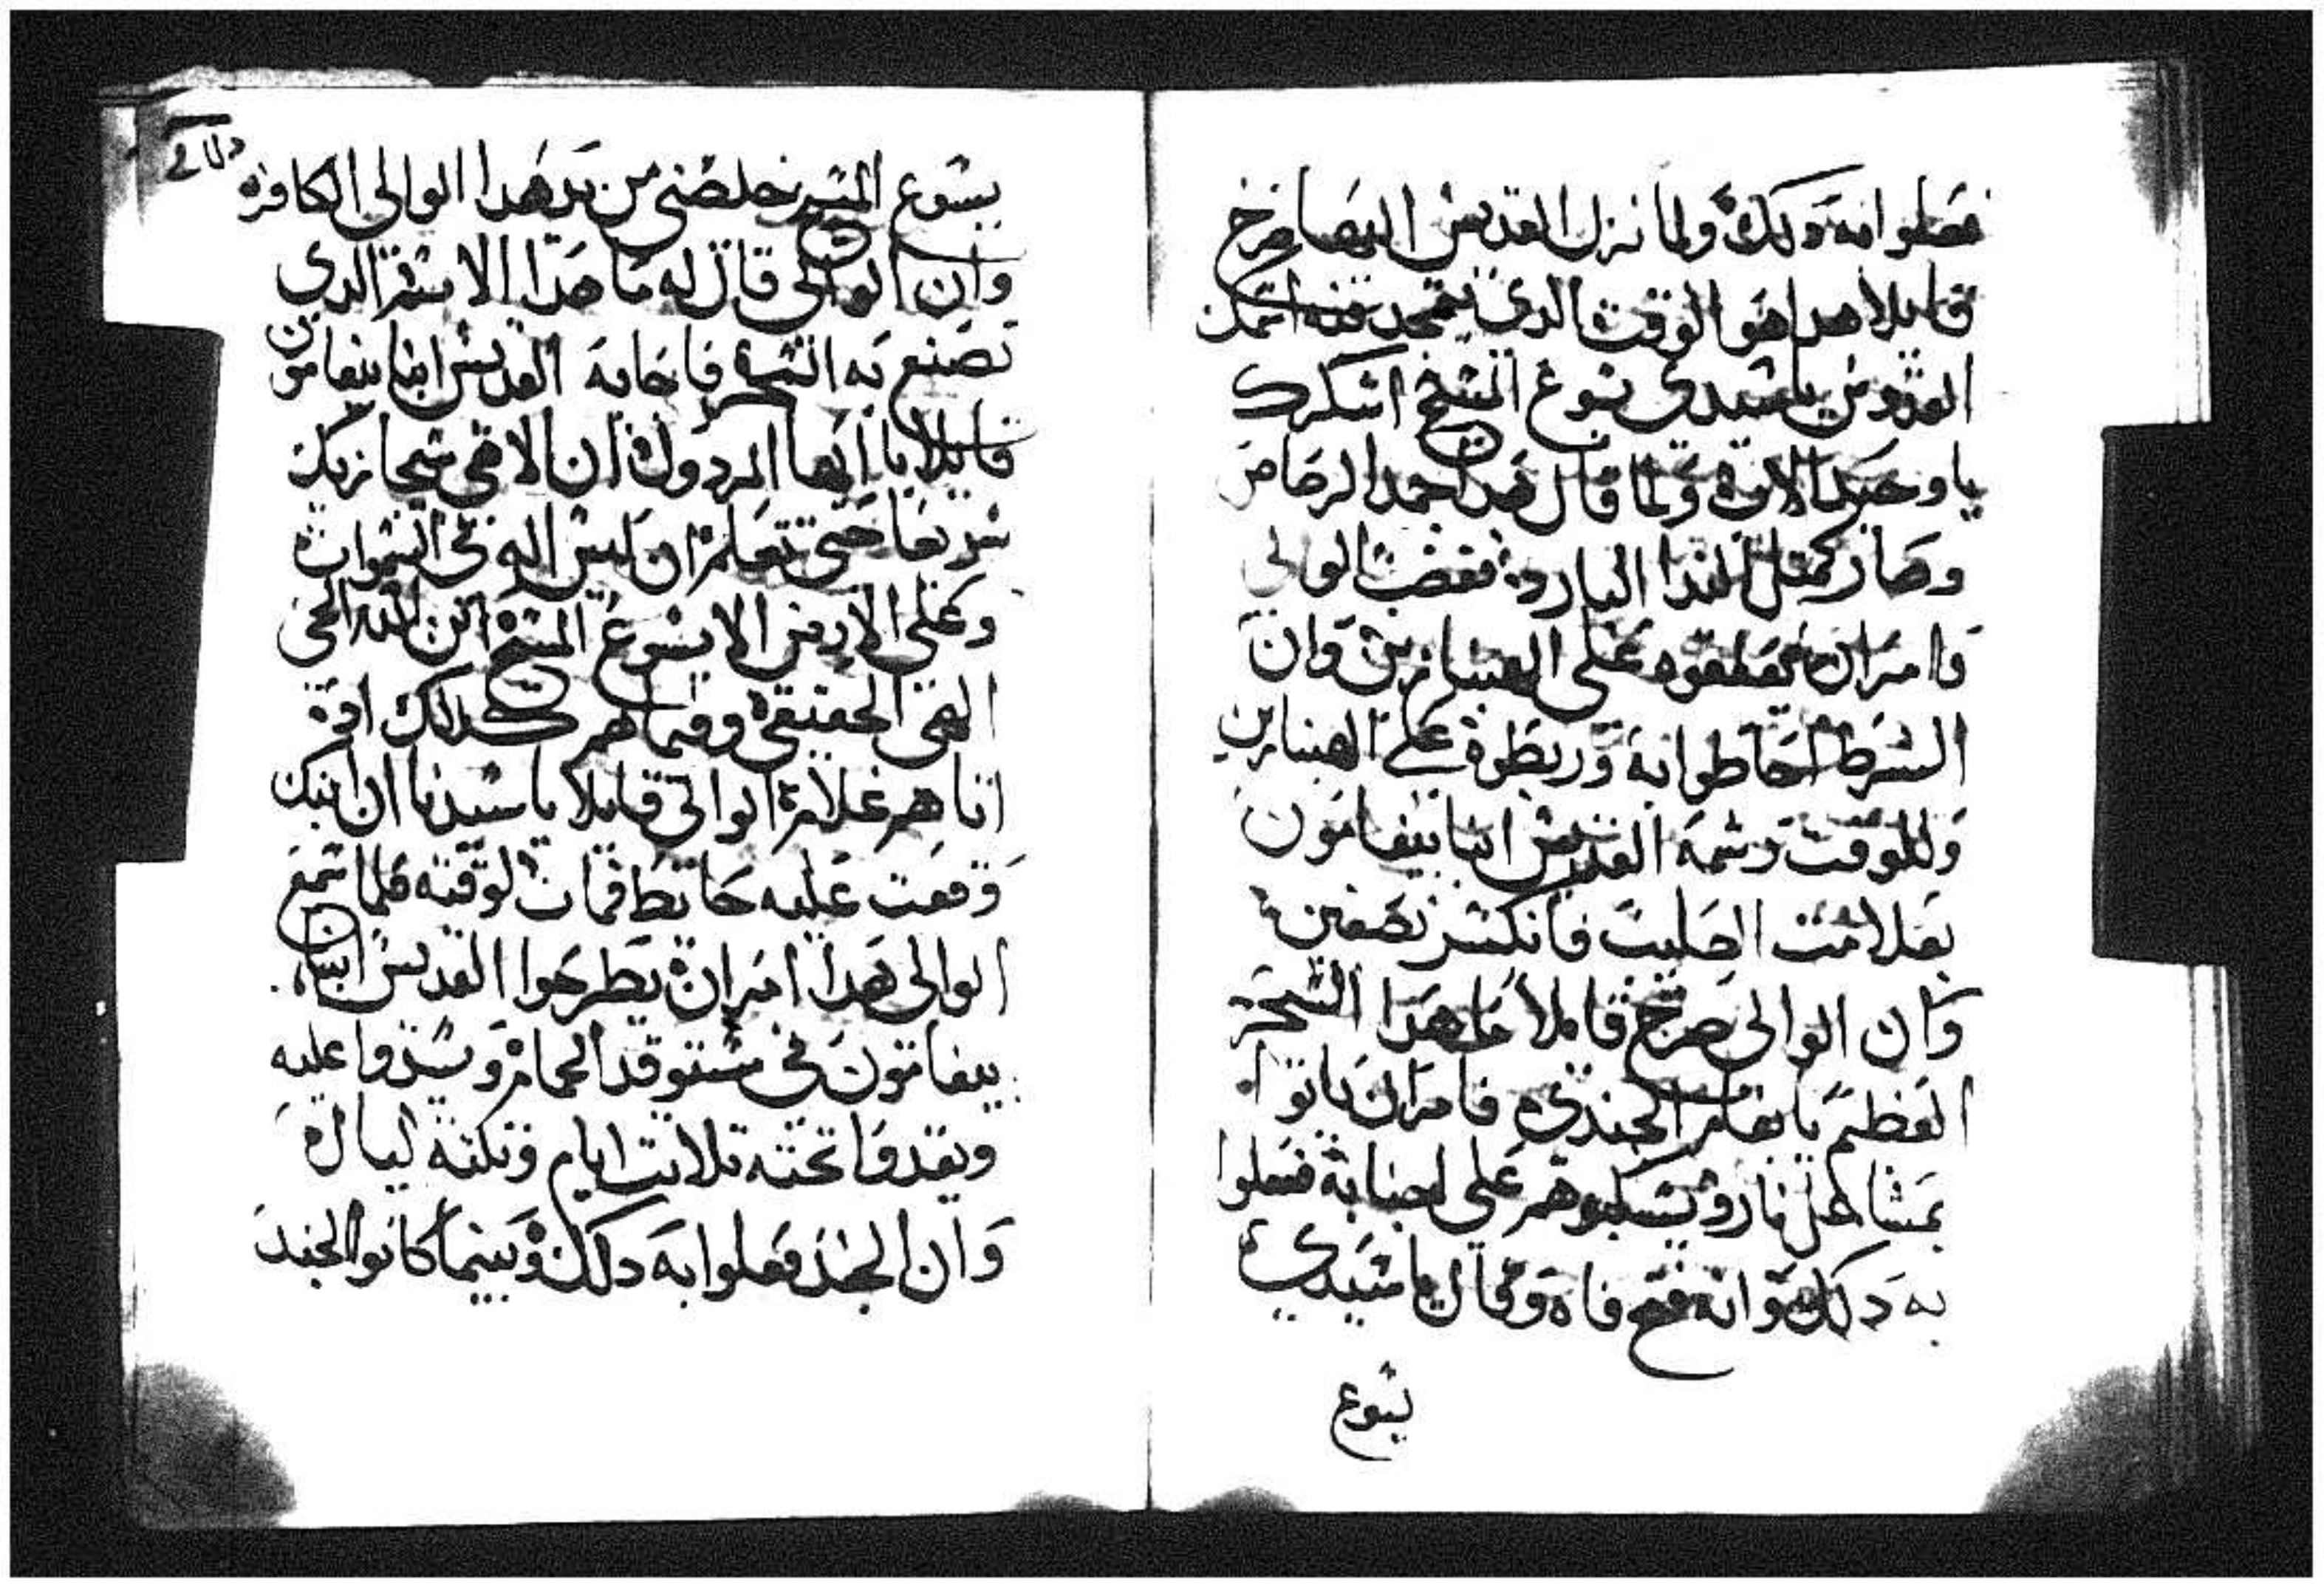 فعلوا به دلك ولما نزل القديس اليها صرخ
قايلا هدا هو الوقت الدي يتمجد فيه اسمك
القدوس يا سيدي يسوع المسيح اشكرك
يا وحيد الاب ولما قال هدا جمد الرصاص
وصار كمتل الندا البارد فغضب الوالي
وامر ان يعلقوه على الهنبازين وان
الشرط احاطوا به وربطوه على الهنبازين
وللوقت رشمه القديس ابنا بيفامون
بعلامت الصليب فانكسر نصفين
وان الوالي صرخ قايلا ما هدا السحر
العظيم يا بفام الجندي فامر ان ياتوا
بمشاعل نار ويسكبوهم على اجنابه ففعلوا
به دلك وانه فتح فاه وقال يا سيدي
يسوع
يسوع المسيح خلصني من يد هدا الوالي الكافر
وان الوالي قال له ما هدا الاسم الدي
تصنع به السحر فاجابه القديس ابنا بيفامون
قايلا يا ايها المردول ان الاهي يجازيك
سريعا حتى تعلم ان ليس اله في السموات
وعلى الارض الا يسوع المسيح ابن الله الحي
الهي الحقيقي وفيما هم كدلك اد
اتاهم غلام الوالي قايلا يا سيدنا ان ابنك
وقعت عليه حايط فمات لوقته فلما سمع
الوالي هدا امر ان يطرحوا القديس ابنا
بيفامون في مستوقد الحمام ويسدوا عليه
ويقدوا تحته تلاتت ايام وتلته ليال
وان الجند فعلوا به دلك وبينما كانوا الجند